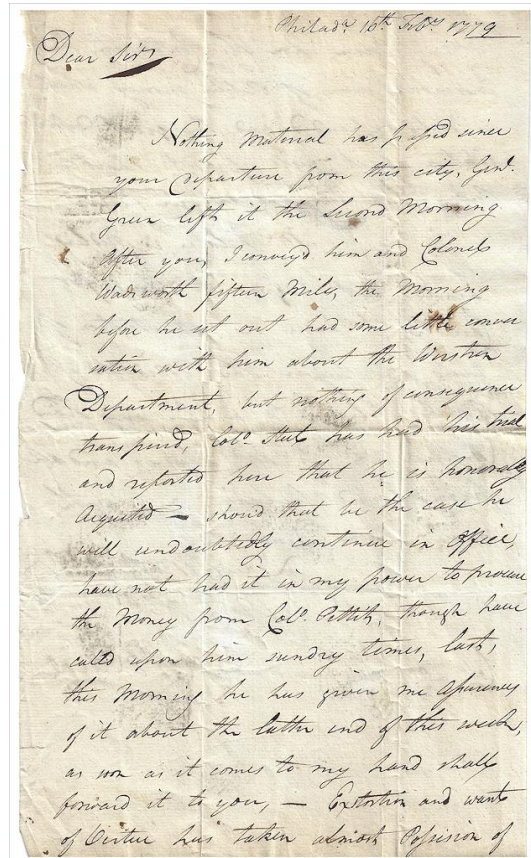 Philada. 16th Feby. 1779
Dear Sir
Nothing Material has passed since
your departure from this city, Genl.
Green left it the Second Morning
after you, I convey'd him and Colonel
Wadsworth fifteen Mile, the Morning
before he set out had some little conver
sation with him about the Western
Department, but nothing of consequence
transpired, Colo. Steel has had his trial
and reported here that he is honorably
Acquited — should that be the case he
will undoubtedly continue in office,
have not had it in my power to procure
the Money from Colo. Pettit, though have
called upon him sundry times, last,
this Morning he has given me Assurances
of it about the latter end of this week,
as soon as it comes to my hand shall
forward it to you, — Extortion and want
of Virtue has taken almost Possission of